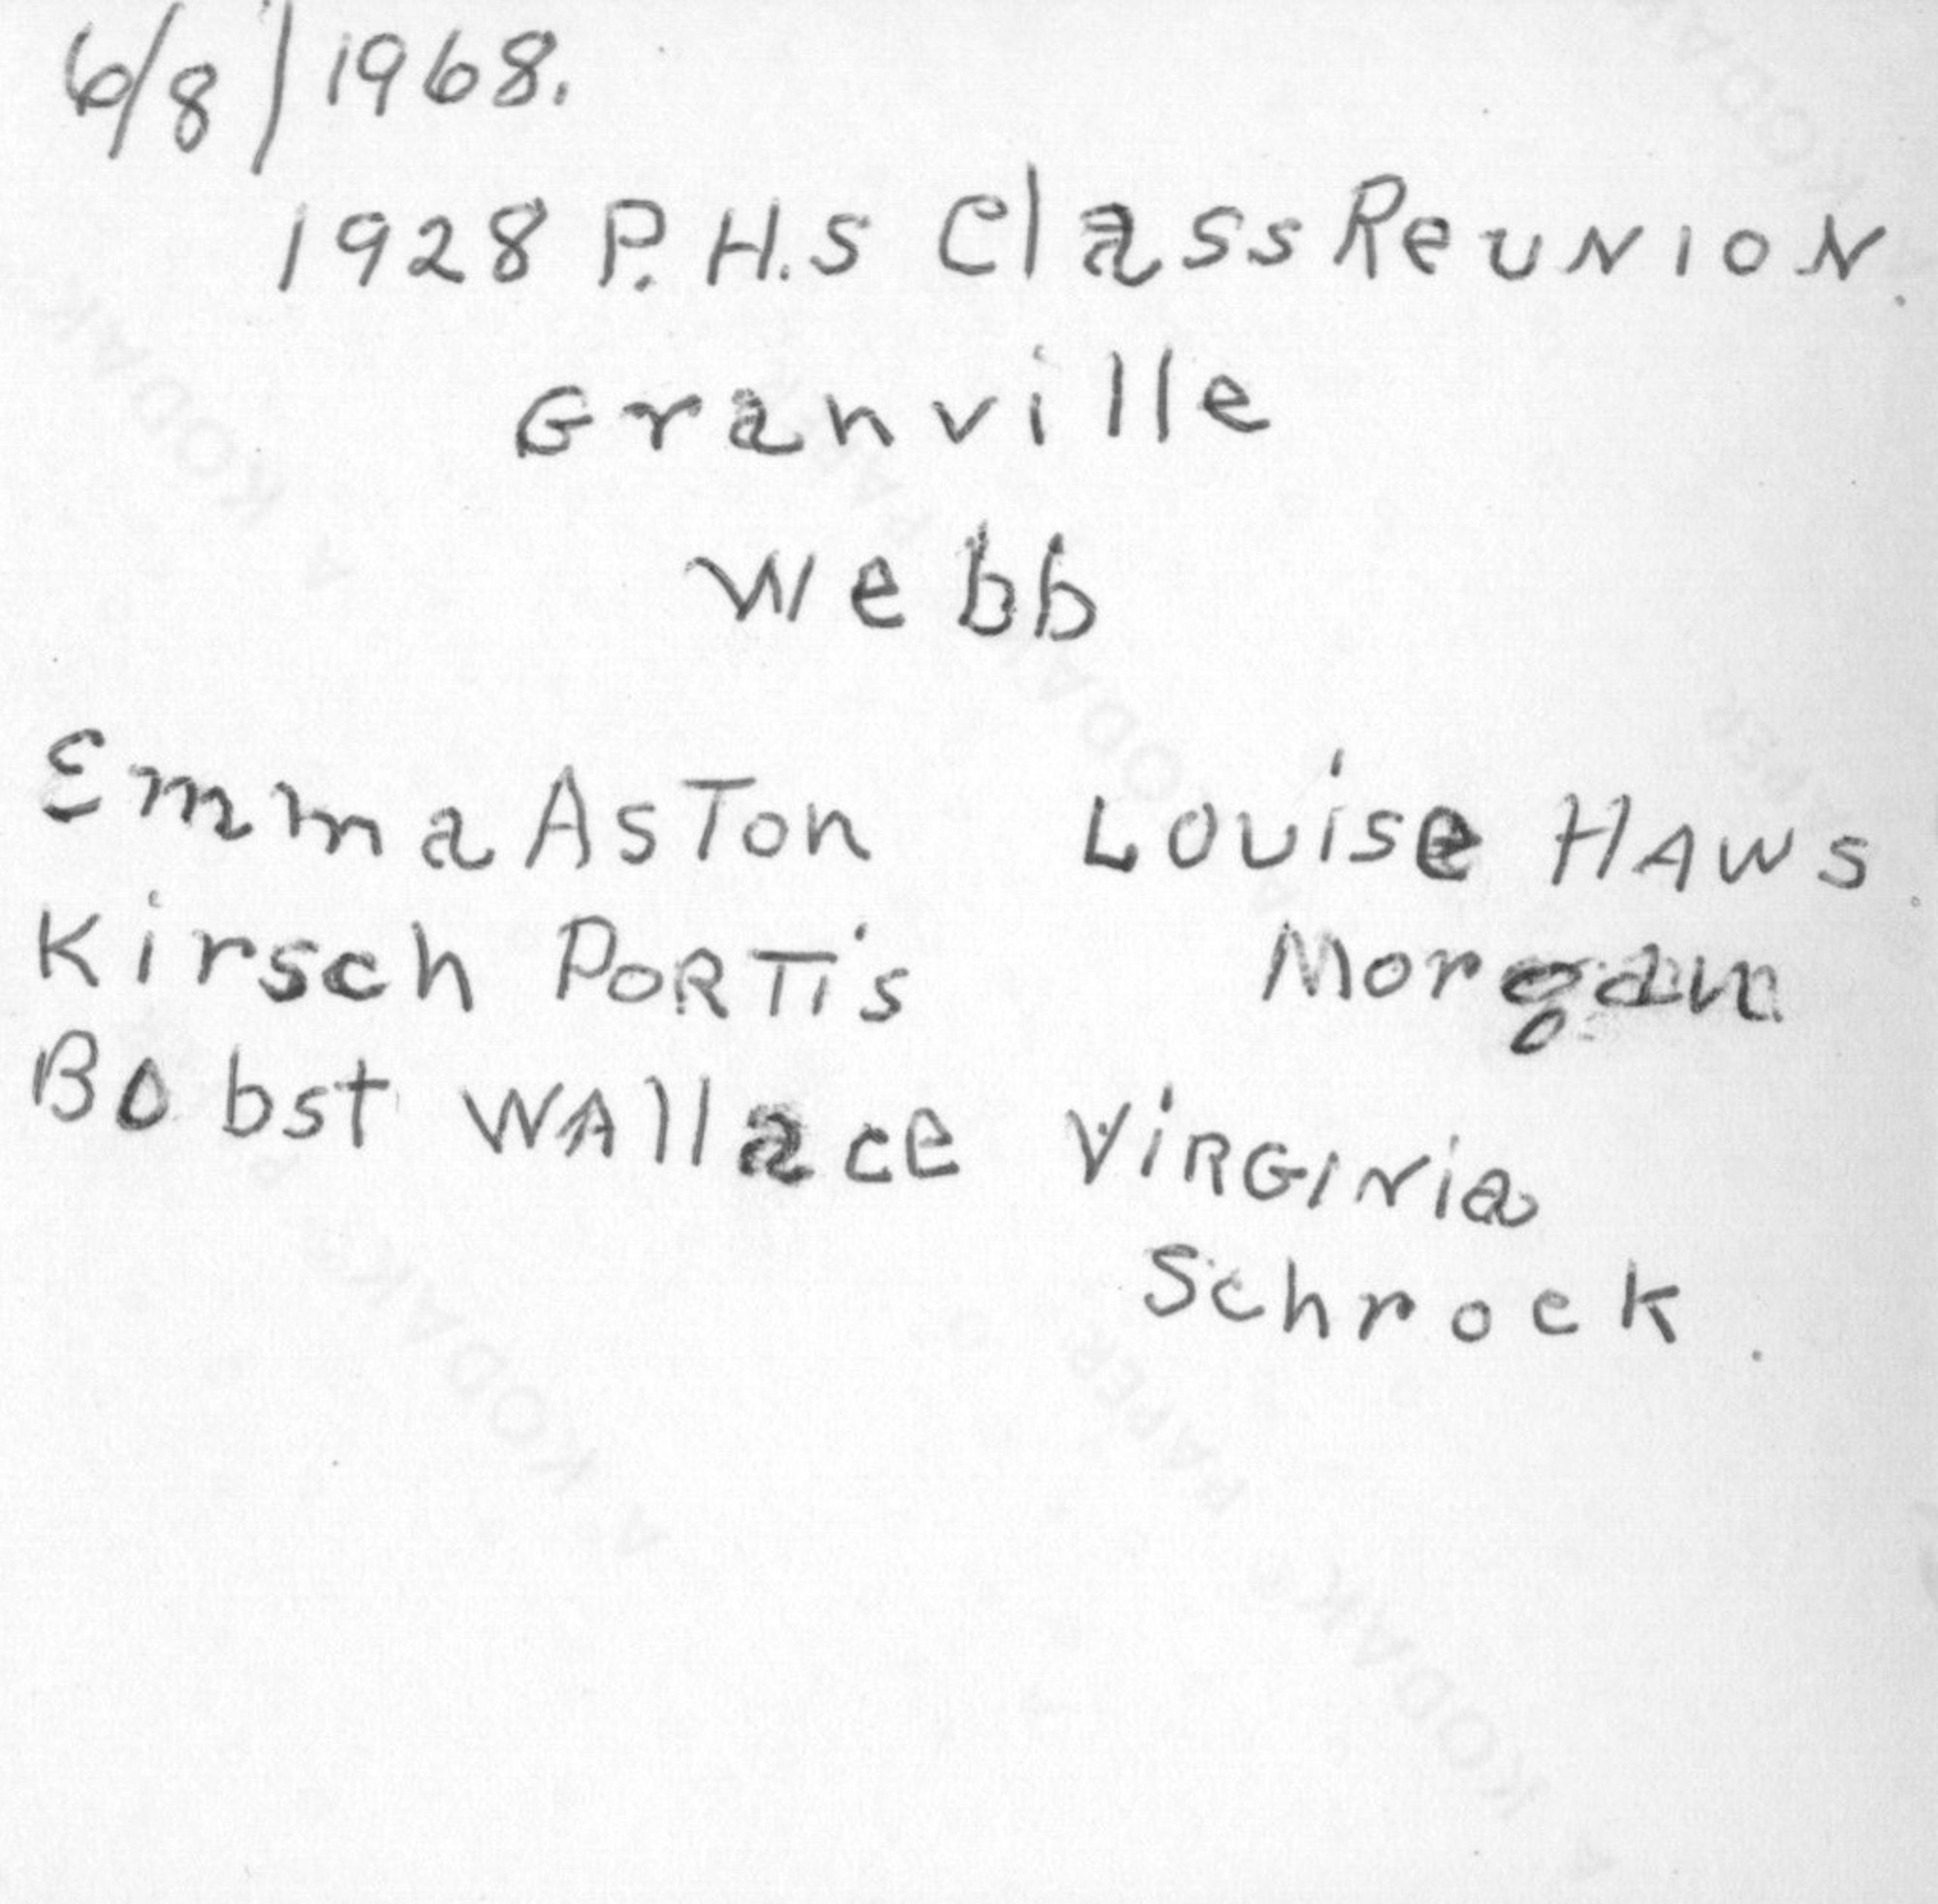 6/8/1968.
1928 P.H.S Class Reunion.
Granville
Webb
Emma Aston Louise Haws.
Kirsch Portis Morgan
Bobst Wallace Virginia
Schrock.
KODAK
KODAK
PAPER
KODAK
PAPER
KODAK
PAPER
KODAK